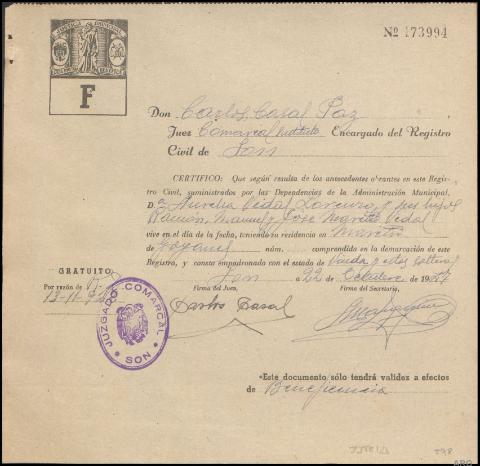 Nº 173994
JUSTICIA MUNICIPAL
F
Don Carlos Casal Paz
Juez Comarcal Sustituto Encargado del Registro
Civil de Son
CERTIFICO: Que según resulta de los antecedentes obrantes en este Regis-
tro Civil, suministrados por las Dependencias de la Administración Municipal,
D.ª Aurelia Vidal Lorenzo, y sus hijos
Ramón, Manuel y Jose Martis Vidal
vive en el día de la fecha, teniendo su residencia en
núm. comprendida en la demarcación de este
Registro, y consta empadronado con el estado de Viuda y estos solteros
Son 22 Octubre de 19
GRATUITO
Por razón de
13-11-9
Firma del Juez, Firma del Secretario,
Carlos Casal
JUZGADO COMARCAL
SON
*Este documento sólo tendrá validez a efectos
de Beneficencia